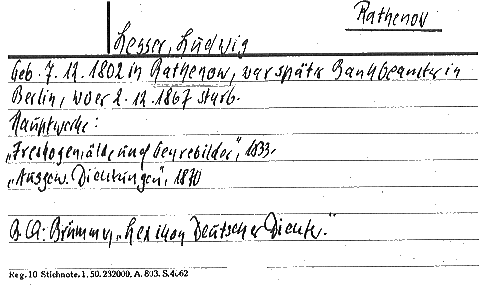 Rathenow
Lesser, Ludwig
geb. 7.12.1802 in Rathenow, war später Bankbeamter in
Berlin, wo er 2.12.1867 starb.
Hauptwerke:
„Freskogemälde und Genrebilder", 1833.
„Ausgew. Dichtungen", 1870
B.Qu: Brümmer, „Lexikon Deutscher Dichter."
Reg. 10 Stichnote. 1. 50. 232000. A. 803. S. 4662